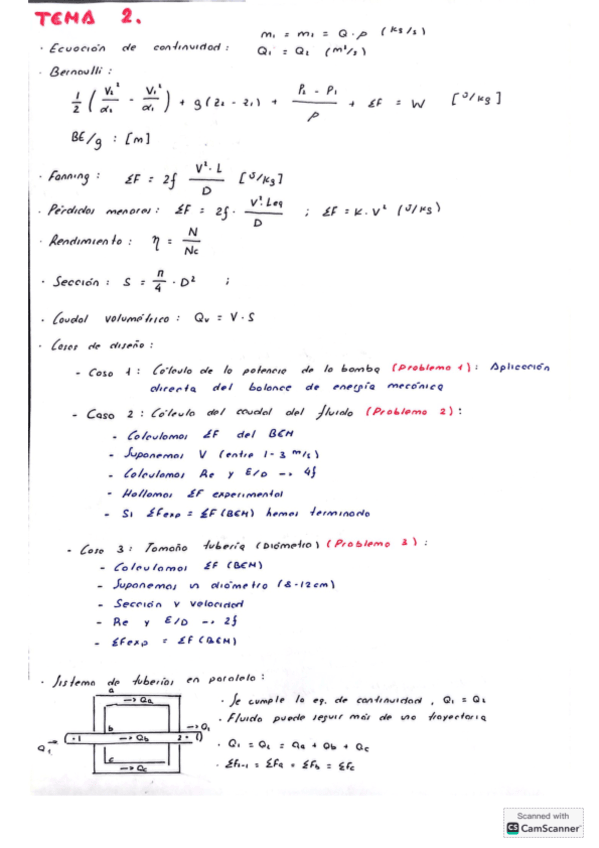 TEMA 2.
· Ecuación de continuidad: m₁ = m₁ = Q·ρ (kg/s)
Q₁ = Q₂ (m³/s)
· Bernoulli:
1/2 (V₂²/α₂ - V₁²/α₁) + g(z₂ - z₁) + (P₂ - P₁)/ρ + ΣF = W [J/kg]
BE/g : [m]
· Fanning: ΣF = 2f V²·L/D [J/kg]
· Pérdidas menores: ΣF = 2f · V²·Leq/D ; ΣF = K·V² (J/kg)
· Rendimiento: η = N/Nc
· Sección: S = π/4 · D² ;
· Caudal volumétrico: Qv = V·S
· Casos de diseño:
- Caso 1: Cálculo de la potencia de la bomba (Problema 1): Aplicación
directa del balance de energía mecánica
- Caso 2: Cálculo del caudal del fluido (Problema 2):
- Calculamos ΣF del BEM
- Suponemos V (entre 1-3 m/s)
- Calculamos Re y E/D --> 4f
- Hallamos ΣF experimental
- Si ΣFexp = ΣF(BEM) hemos terminado
- Caso 3: Tamaño tubería (Diámetro) (Problema 3):
- Calculamos ΣF (BEM)
- Suponemos un diámetro (8-12cm)
- Sección y velocidad
- Re y E/D --> 2f
- ΣFexp = ΣF(BEM)
· Sistema de tuberías en paralelo:
a
→ Qa
b
→ Qb
c
→ Qc
Q₁
· 1
2 ·
→ Q₂
· Se cumple la eq. de continuidad, Q₁ = Q₂
· Fluido puede seguir más de una trayectoria
· Q₁ = Q₂ = Qa + Qb + Qc
· ΣF₁₋₂ = ΣFa = ΣFb = ΣFc
Scanned with
CS CamScanner